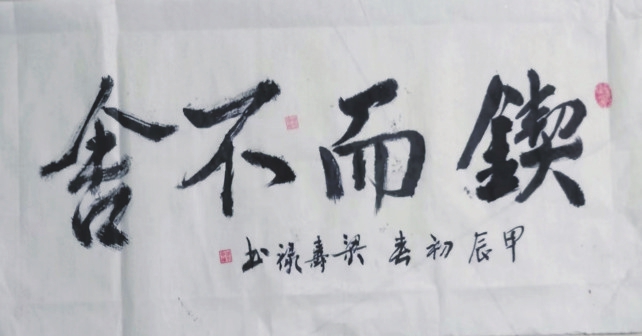 鍥而不舍
甲辰初春梁寿禄书